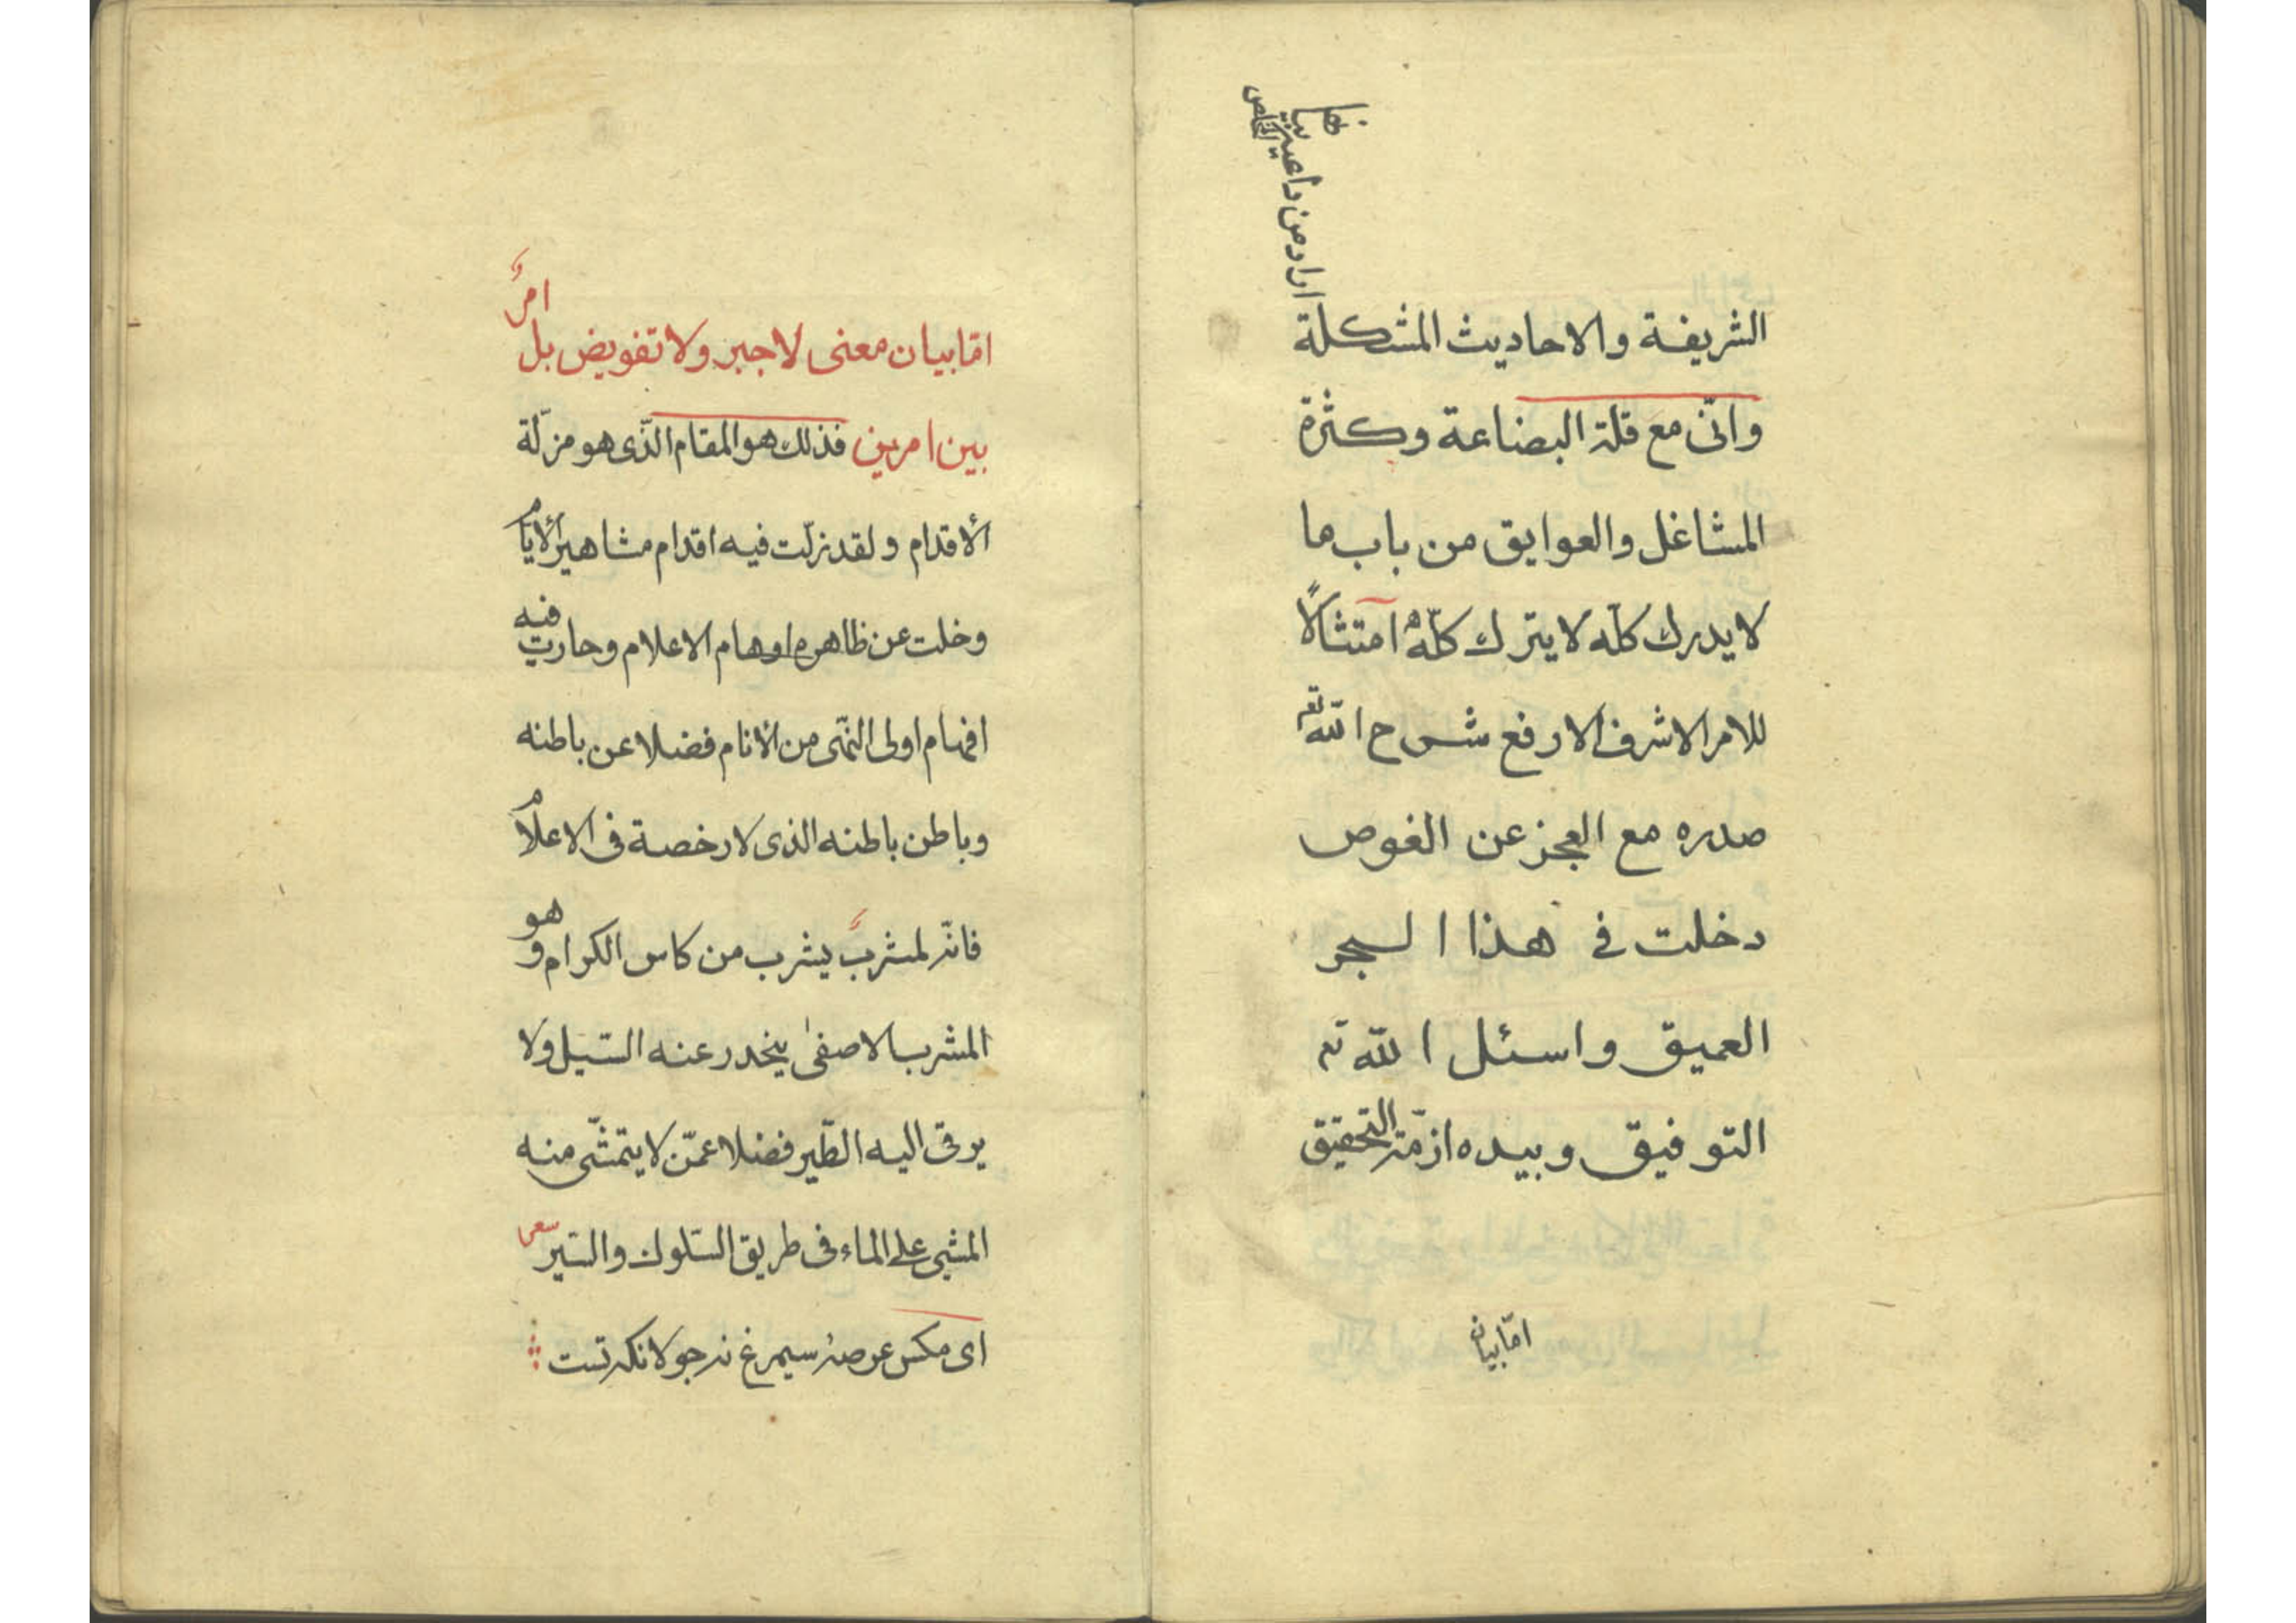 الشريفة والاحاديث المشكلة
اراد من داعيه بيانها
وانّى مع قلة البضاعة وكثرة
المشاغل والعوايق من باب ما
لا يدرك كلّه لا يترك كلّه امتثالاً
للامر الاشرف الارفع شرح الله تعم
صدره مع العجز عن الغوص
دخلت فى هذا البحر
العميق واسئل الله تعم
التوفيق وبيده ازمّة التحقيق
امّا بيان
امّا بيان معنى لا جبر ولا تفويض بل امرٌ
بين امرين فذلك هو المقام الذّى هو مزلّة
الأقدام ولقد زلّت فيه اقدام مشاهير الأيام
وخلت عن ظاهره اوهام الاعلام وحارت فيه
افهام اولى النّهى من الأنام فضلا عن باطنه
وباطن باطنه الذى لا رخصة فى الاعلام
فانّه لمشربٌ يشرب من كاس الكرام وهو
المشرب الاصفى ينحدر عنه السّيل ولا
يرقى اليه الطّير فضلا عمّن لا يتمشّى منه
المشى على الماء فى طريق السّلوك والسّير
اى مكس عرصۀ سيمرغ نه جولانكه تست